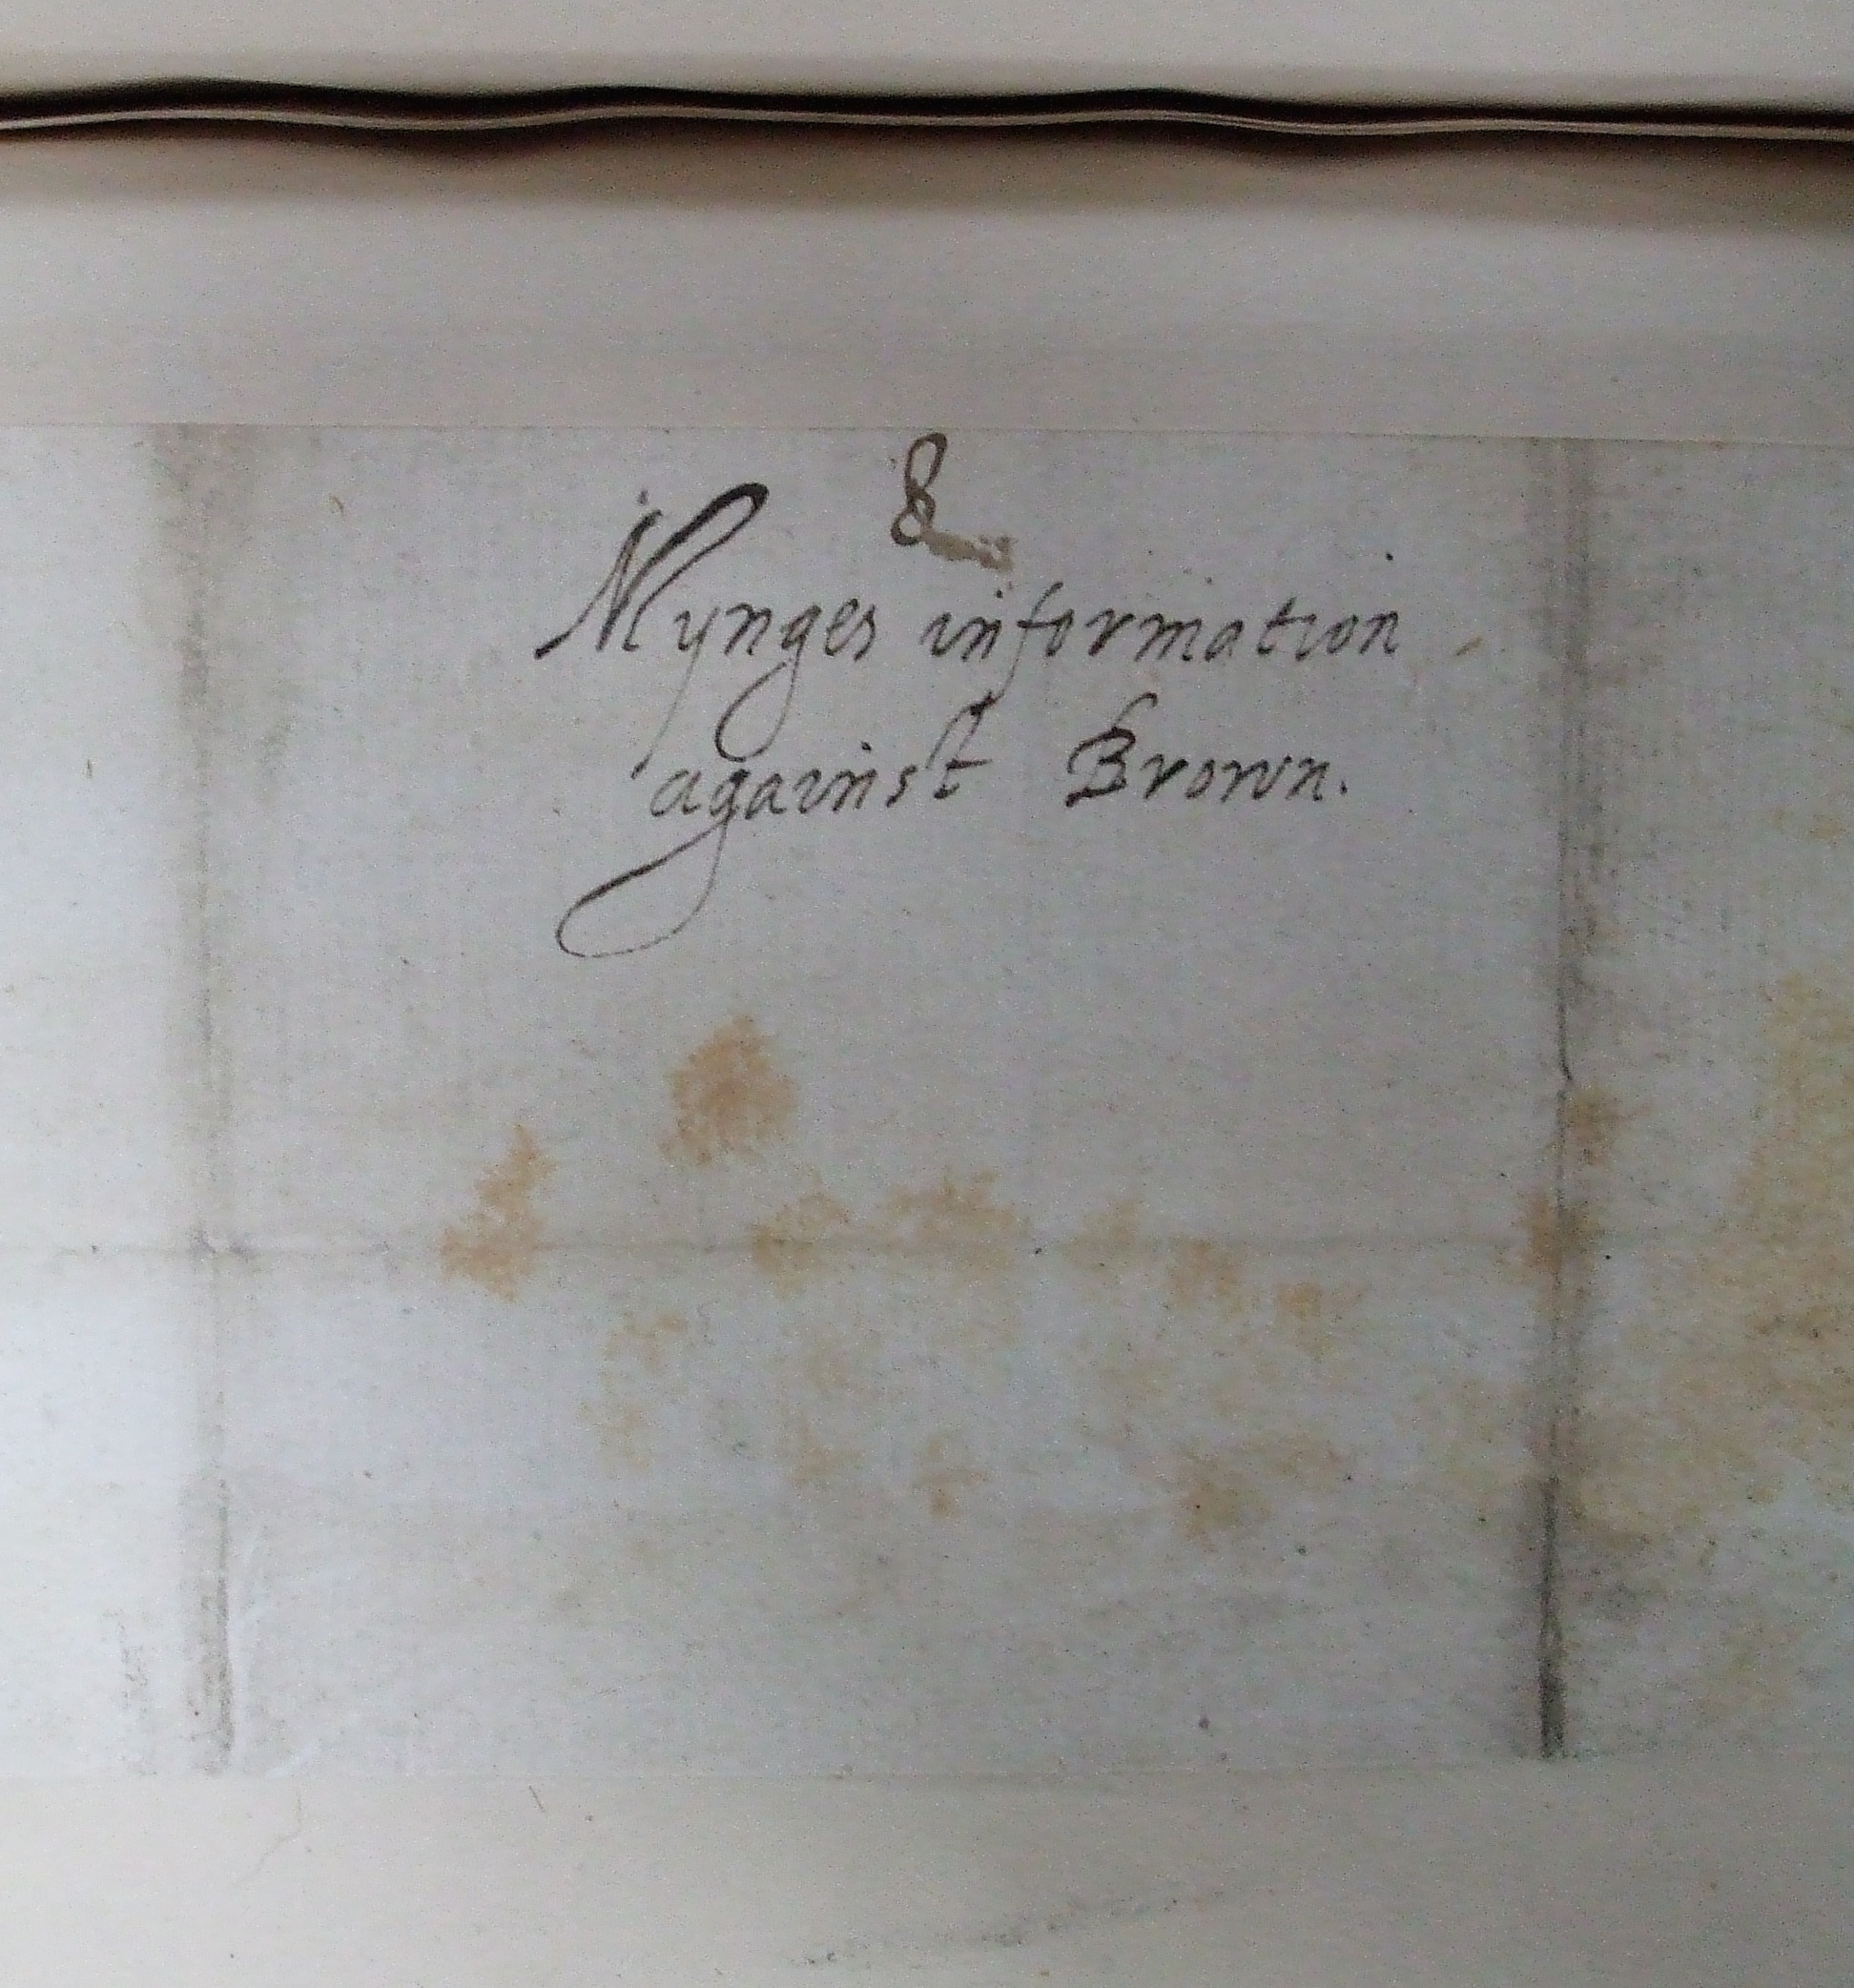 8
Mynges information
against Brown.